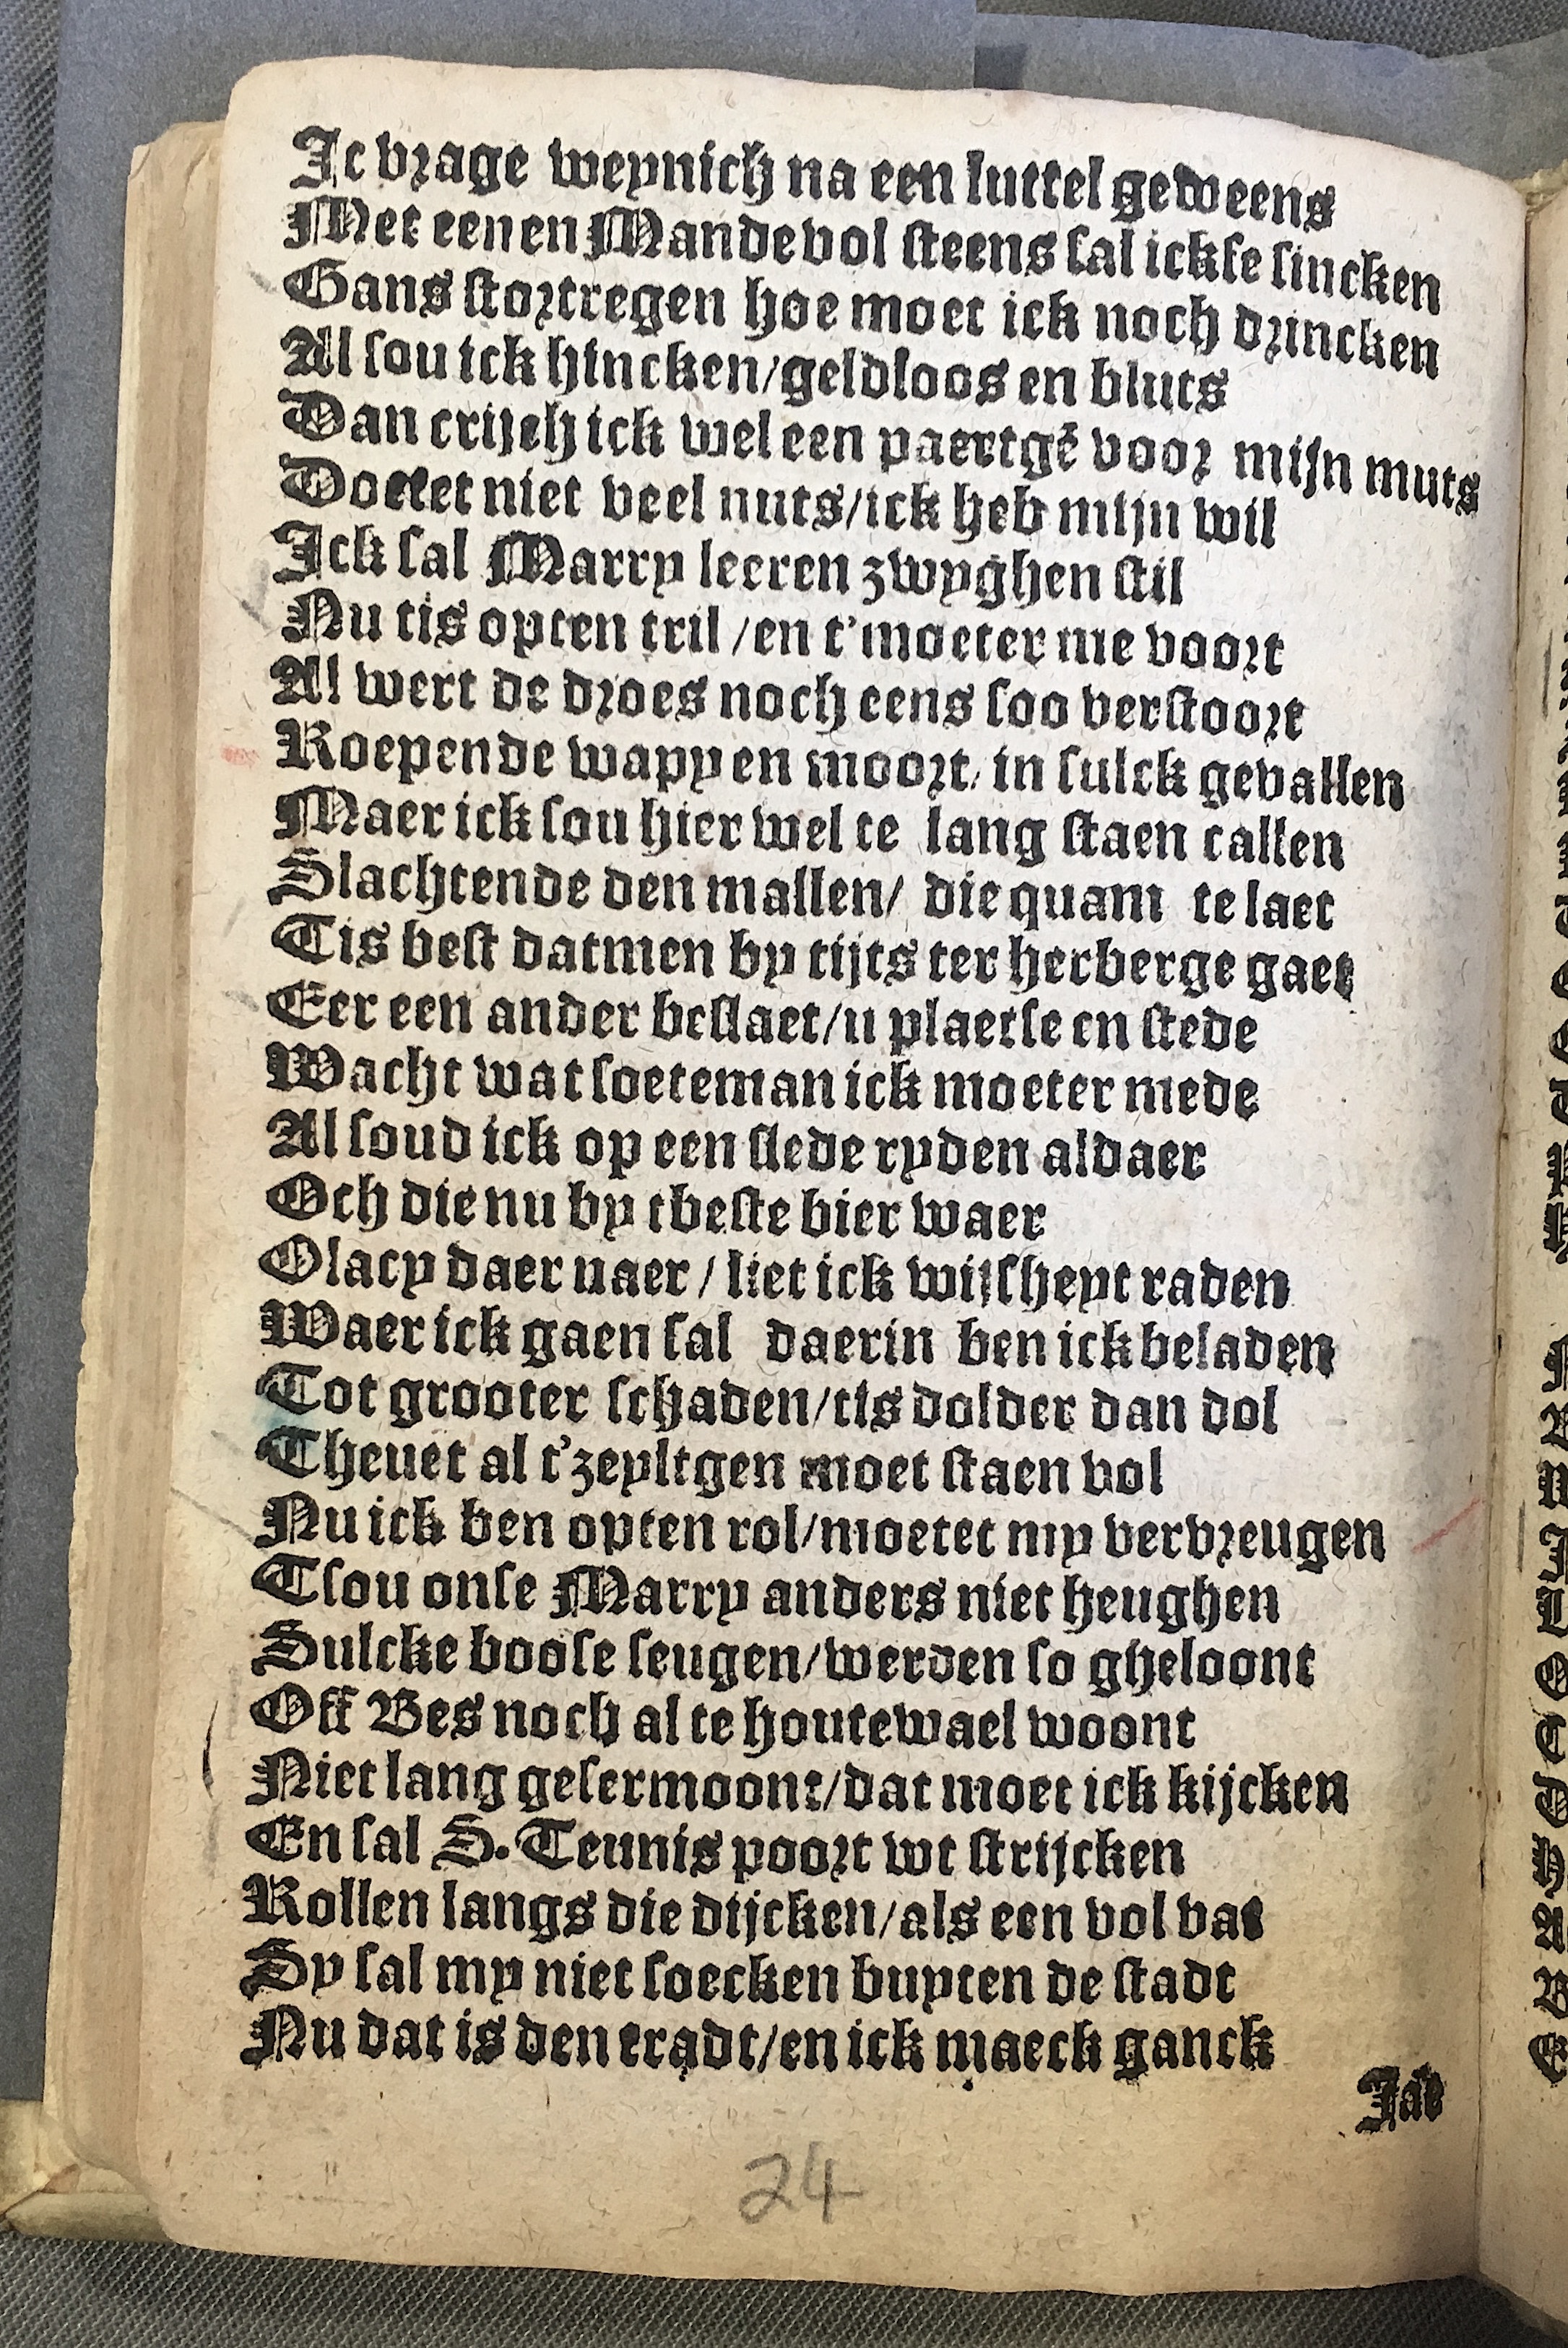 Ic vrage weynich na een luttel geweens
Met eenen Mande vol steens sal ickse sincken
Gans stortregen hoe moet ick noch drincken
Al sou ick hincken/geldloos en bluts
Dan crijch ick wel een paertgē voor mijn muts
Doetet niet veel nuts/ick heb mijn wil
Ick sal Marry leeren zwyghen stil
Nu tis opten tril/en t'moeter me voort
Al wert de droes noch eens soo verstoort
Roepende wapy en moort/in sulck gevallen
Maer ick sou hier wel te lang staen callen
Slachtende den mallen/ die quam te laet
Tis best datmen by tijts ter herberge gaet
Eer een ander beslaet/u plaetse en stede
Wacht wat soeteman ick moeter mede
Al soud ick op een slede ryden aldaer
Och die nu by tbeste bier waer
Olacy daer naer/liet ick wijsheyt raden
Waer ick gaen sal daerin ben ick beladen
Tot grooter schaden/tis dolder dan dol
Theuet al t'zeyltgen moet staen vol
Nu ick ben opten rol/moetet my vervreugen
Tsou onse Marry anders niet heughen
Sulcke boose seugen/werden so gheloont
Off Bes noch al te houtewael woont
Niet lang gesermoont/dat moet ick kijcken
En sal S. Teunis poort wt strijcken
Rollen langs die dijcken/als een vol vat
Sy sal my niet soecken buyten de stadt
Nu dat is den tradt/en ick maeck ganck
Jae
24